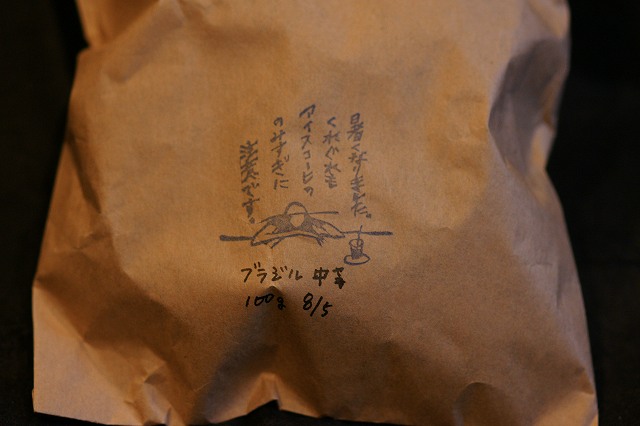 暑くなりました。
くれぐれも
アイスコーヒーの
のみすぎに
注意です。
ブラジル 中挽
100g 8/5